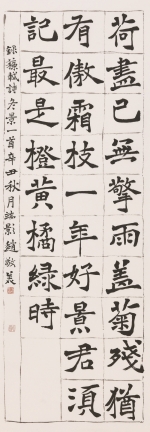 荷盡已無擎雨盖菊殘猶
有傲霜枝一年好景君須
記最是橙黄橘緑時
録蘇軾詩冬景一首辛丑秋月